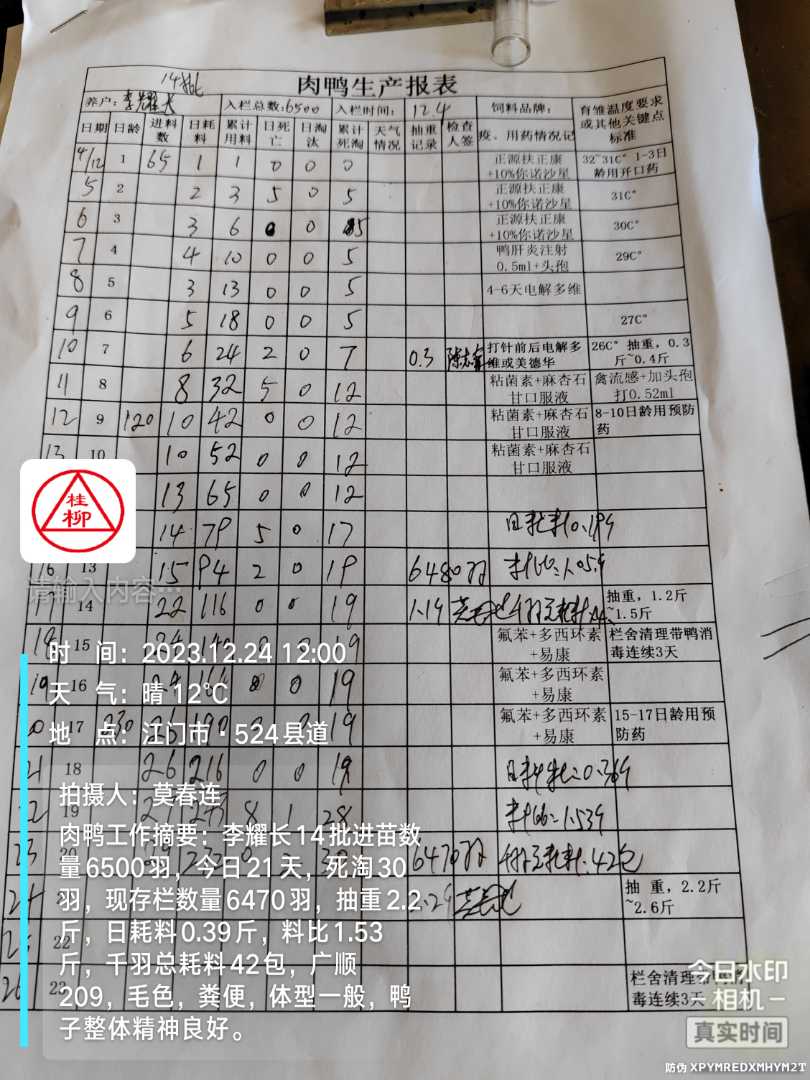 14批
肉鸭生产报表
养户: 李耀长 入栏总数: 6500 入栏时间: 12.4 饲料品牌: 育雏温度要求或其他关键点标准
日期 日龄 进料数 日耗料 累计用料 日死亡 日淘汰 累计死淘 天气情况 抽重记录 检查人签 疫、用药情况记
4/12 1 65 1 1 0 0 0 正源扶正康+10%你诺沙星 32~31C° 1-3日龄用开口药
5 2 2 3 5 0 5 正源扶正康+10%你诺沙星 31C°
6 3 3 6 0 0 5 正源扶正康+10%你诺沙星 30C°
7 4 4 10 0 0 5 鸭肝炎注射0.5ml+头孢 29C°
8 5 3 13 0 0 5 4-6天电解多维
9 6 5 18 0 0 5 27C°
10 7 6 24 2 0 7 0.3 打针前后电解多维或美德华 26C° 抽重，0.3斤~0.4斤
11 8 8 32 5 0 12 粘菌素+麻杏石甘口服液 禽流感+加头孢打0.52ml
12 9 120 10 42 0 0 12 粘菌素+麻杏石甘口服液 8-10日龄用预防药
13 10 10 52 0 0 12 粘菌素+麻杏石甘口服液
13 65 0 0 12
14 79 5 0 17
16 13 15 94 2 0 19 6480羽
17 14 22 116 0 0 19 抽重，1.2斤~1.5斤
18 15 0 19 氟苯+多西环素+易康 栏舍清理带鸭消毒连续3天
19 16 0 0 19 氟苯+多西环素+易康
17 230 190 19 氟苯+多西环素+易康 15-17日龄用预防药
21 18 26 216 0 0 19
19 8 1 28 料比=1.53斤
23 6470羽 42包
24 抽 重，2.2斤~2.6斤
22
26 23 栏舍清理带 毒连续3天
桂柳
请输入内容…
时 间：2023.12.24 12:00
天 气：晴 12℃
地 点：江门市·524县道
拍摄人：莫春连
肉鸭工作摘要：李耀长14批进苗数
量6500羽，今日21天，死淘30
羽，现存栏数量6470羽，抽重2.2
斤，日耗料0.39斤，料比1.53
斤，千羽总耗料42包，广顺
209，毛色，粪便，体型一般，鸭
子整体精神良好。
今日水印
相机
真实时间
防伪 XPYMREDXMHYM2T